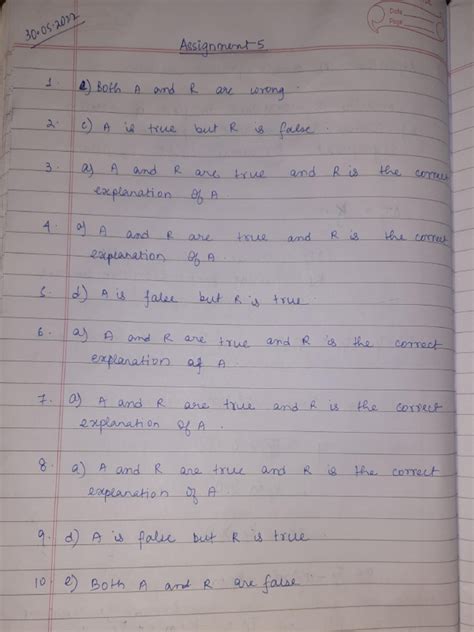 30.05.2022
Date
Page
Assignment 5
1. e) Both A and R are wrong.
2. c) A is true but R is false.
3. a) A and R are true and R is the correct
explanation of A
4. a) A and R are true and R is the correct
explanation of A.
5. d) A is false but R is true.
6. a) A and R are true and R is the correct
explanation of A.
7. a) A and R are true and R is the correct
explanation of A.
8. a) A and R are true and R is the correct
explanation of A.
9. d) A is false but R is true
10 e) Both A and R are false.